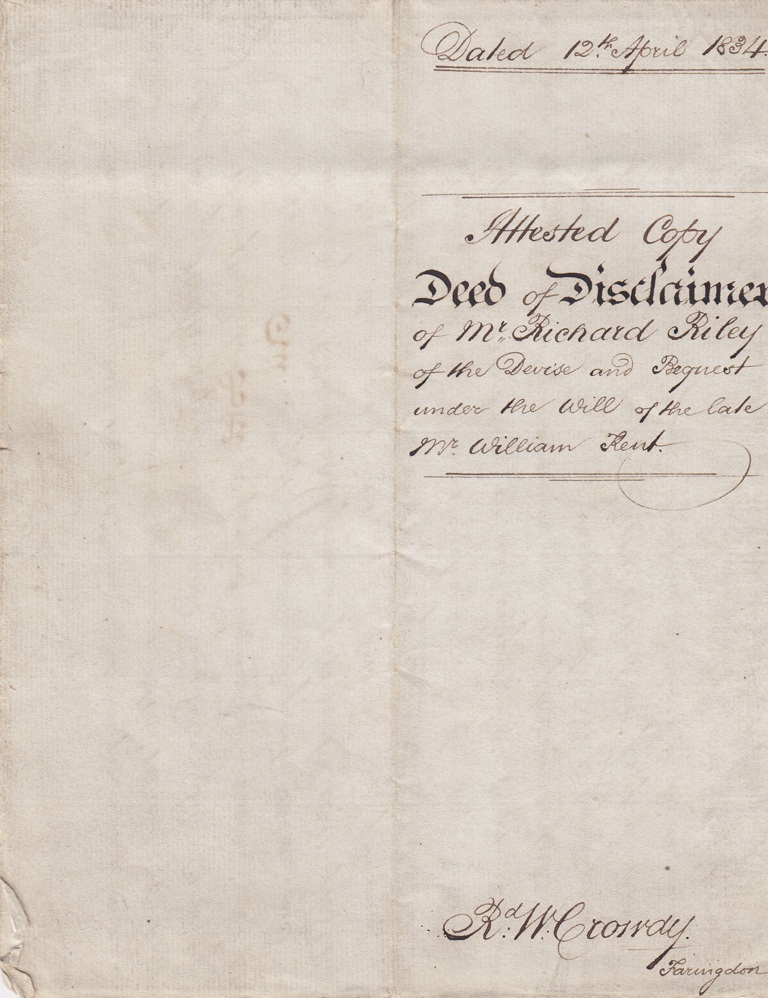 Dated 12th April 1834.
Attested Copy
Deed of Disclaimer
of Mr. Richard Riley
of the Devise and Bequest
under the Will of the late
Mr. William Kent.
Rd. W. Crowdy.
Faringdon